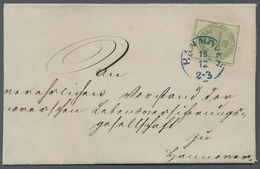 HANNOVER
15
12
2-3
An
verehrlichen Vorstand der
noverschen Lebensversicherungs-
gesellschaft
zu
Hannover.